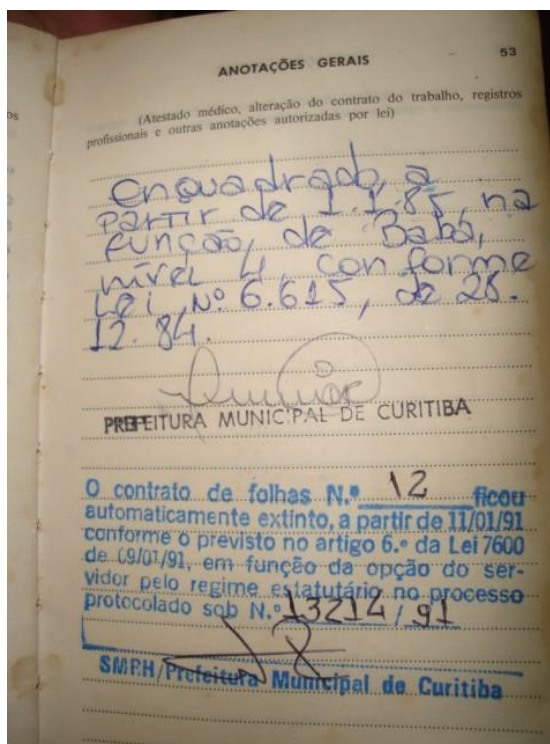 53
ANOTAÇÕES GERAIS
(Atestado médico, alteração do contrato do trabalho, registros
profissionais e outras anotações autorizadas por lei)
os
Enquadrado, a
partir de 1.1.85, na
função, de Babá,
nível 4, conforme
Lei, Nº 6.615, de 28.
12.84.
PREFEITURA MUNICIPAL DE CURITIBA
O contrato de folhas N.º 12 ficou
automaticamente extinto, a partir de 11/01/91
conforme o previsto no artigo 6.º da Lei 7600
de 09/01/91, em função da opção do ser-
vidor pelo regime estatutário no processo
protocolado sob N.º 13214 / 91
SMRH/Prefeitura Municipal de Curitiba